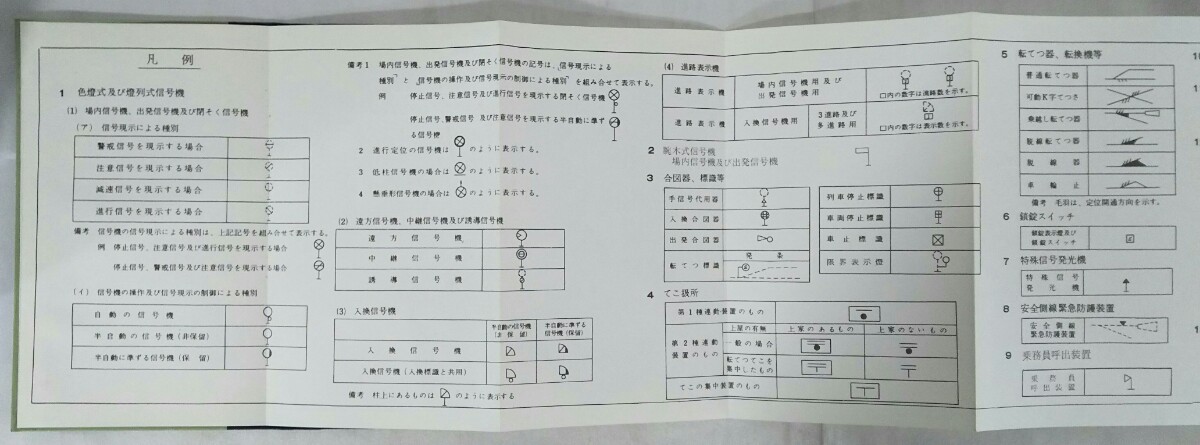 凡例
1 色燈式及び燈列式信号機
(1) 場内信号機、出発信号機及び閉そく信号機
(ア) 信号現示による種別
警戒信号を現示する場合
注意信号を現示する場合
減速信号を現示する場合
進行信号を現示する場合
備考 信号機の信号現示による種別は、上記記号を組み合せて表示する。
例 停止信号、注意信号及び進行信号を現示する場合
停止信号、警戒信号及び注意信号を現示する場合
(イ) 信号機の操作及び信号現示の制御による種別
自動の信号機
半自動の信号機(非保留)
半自動に準ずる信号機(保留)
備考1 場内信号機、出発信号機及び閉そく信号機の記号は、信号現示による
種別と信号機の操作及び信号現示の制御による種別を組み合せて表示する。
例 停止信号、注意信号及び進行信号を現示する閉そく信号機
停止信号、警戒信号及び注意信号を現示する半自動に準ず
る信号機
2 進行定位の信号機は のように表示する。
3 低柱信号機の場合は のように表示する。
4 懸垂形信号機の場合は のように表示する。
(2) 遠方信号機、中継信号機及び誘導信号機
遠方信号機
中継信号機
誘導信号機
(3) 入換信号機
半自動の信号機(非保留)
半自動に準ずる信号機(保留)
入換信号機
入換信号機(入換標識と共用)
備考 柱上にあるものは のように表示する
(4) 進路表示機
進路表示機
場内信号機用及び
出発信号機用
□内の数字は進路数を示す。
進路表示機
入換信号機用
3進路及び
多進路用
□内の数字は表示数を示す。
2 腕木式信号機
場内信号機及び出発信号機
3 合図器、標識等
手信号代用器
入換合図器
出発合図器
転てつ標識
発条
列車停止標識
車両停止標識
車止標識
限界表示燈
4 てこ扱所
第1種連動装置のもの
第2種連動
装置のもの
上屋の有無
上家のあるもの
上家のないもの
一般の場合
転てつてこを
集中したもの
てこの集中装置のもの
5 転てつ器、転換機等
普通転てつ器
可動K字てつさ
乗越し転てつ器
脱線転てつ器
脱線器
車輪止
備考 毛羽は、定位開通方向を示す。
6 鎖錠スイッチ
鎖錠表示燈及び
鎖錠スイッチ
7 特殊信号発光機
特殊信号
発光機
8 安全側線緊急防護装置
安全側線
緊急防護装置
9 乗務員呼出装置
乗務員
呼出装置
10
1
1
1